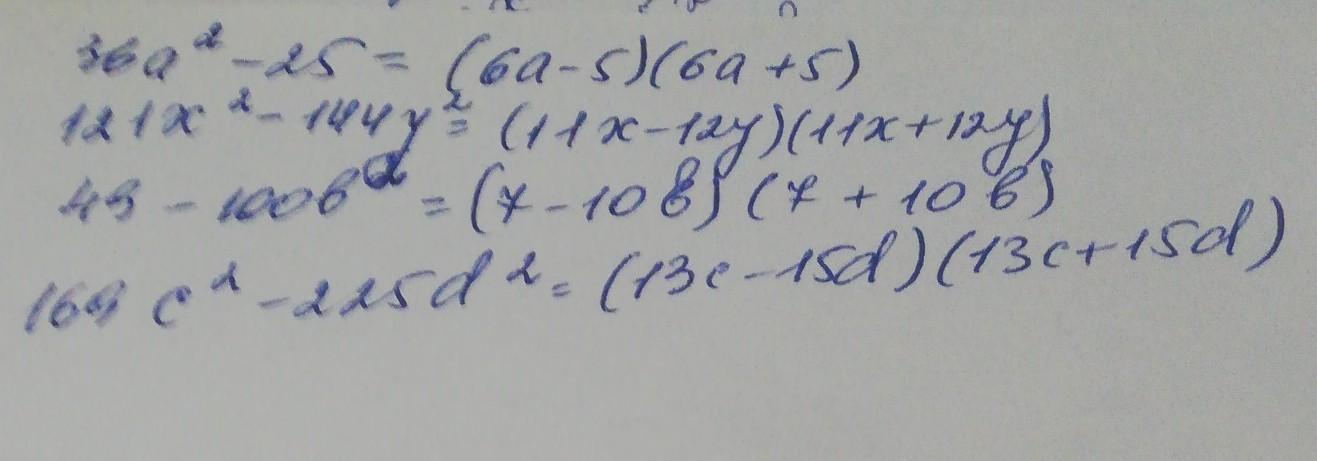 36a² - 25 = (6a - 5)(6a + 5)
121x² - 144y² = (11x - 12y)(11x + 12y)
49 - 100b² = (7 - 10b)(7 + 10b)
169c² - 225d² = (13c - 15d)(13c + 15d)